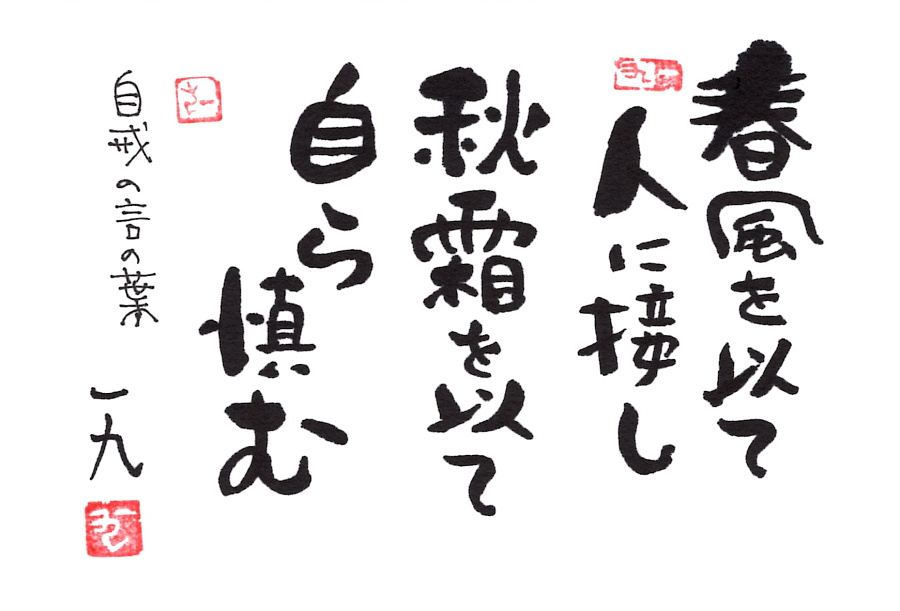 春風を以て
人に接し
秋霜を以て
自ら
慎む
自戒の言の葉
一九